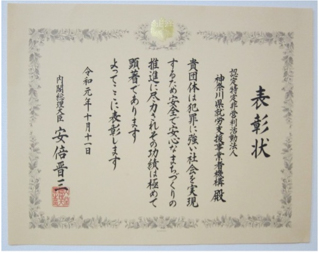 表彰状
認定特定非営利活動法人
神奈川県就労支援事業者機構 殿
貴団体は犯罪に強い社会を実現
するため安全で安心なまちづくりの
推進に尽力されその功績は極めて
顕著であります
よってここに表彰します
令和元年十月十一日
内閣総理大臣 安倍晋三